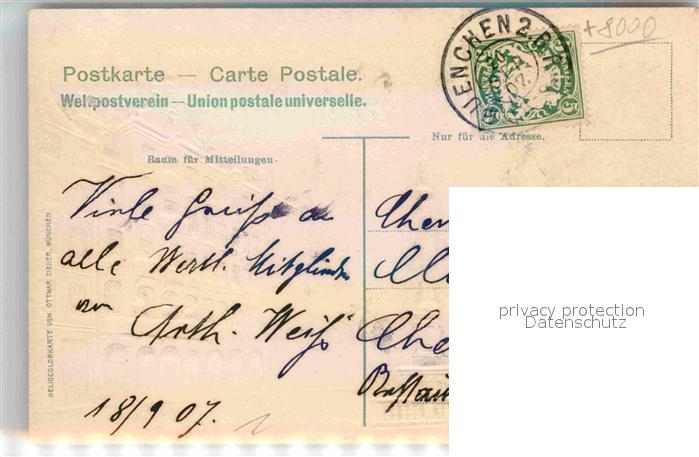 +8000
MUENCHEN 2 B.P.
Postkarte — Carte Postale.
Weltpostverein — Union postale universelle.
5
Nur für die Adresse.
Raum für Mitteilungen.
Viele Grüße an
alle Werth. Mitglieder
von
Arth. Weiß
18/9 07.
HELIOCOLORKARTE VON OTTMAR ZIEHER, MÜNCHEN
privacy protection
Datenschutz